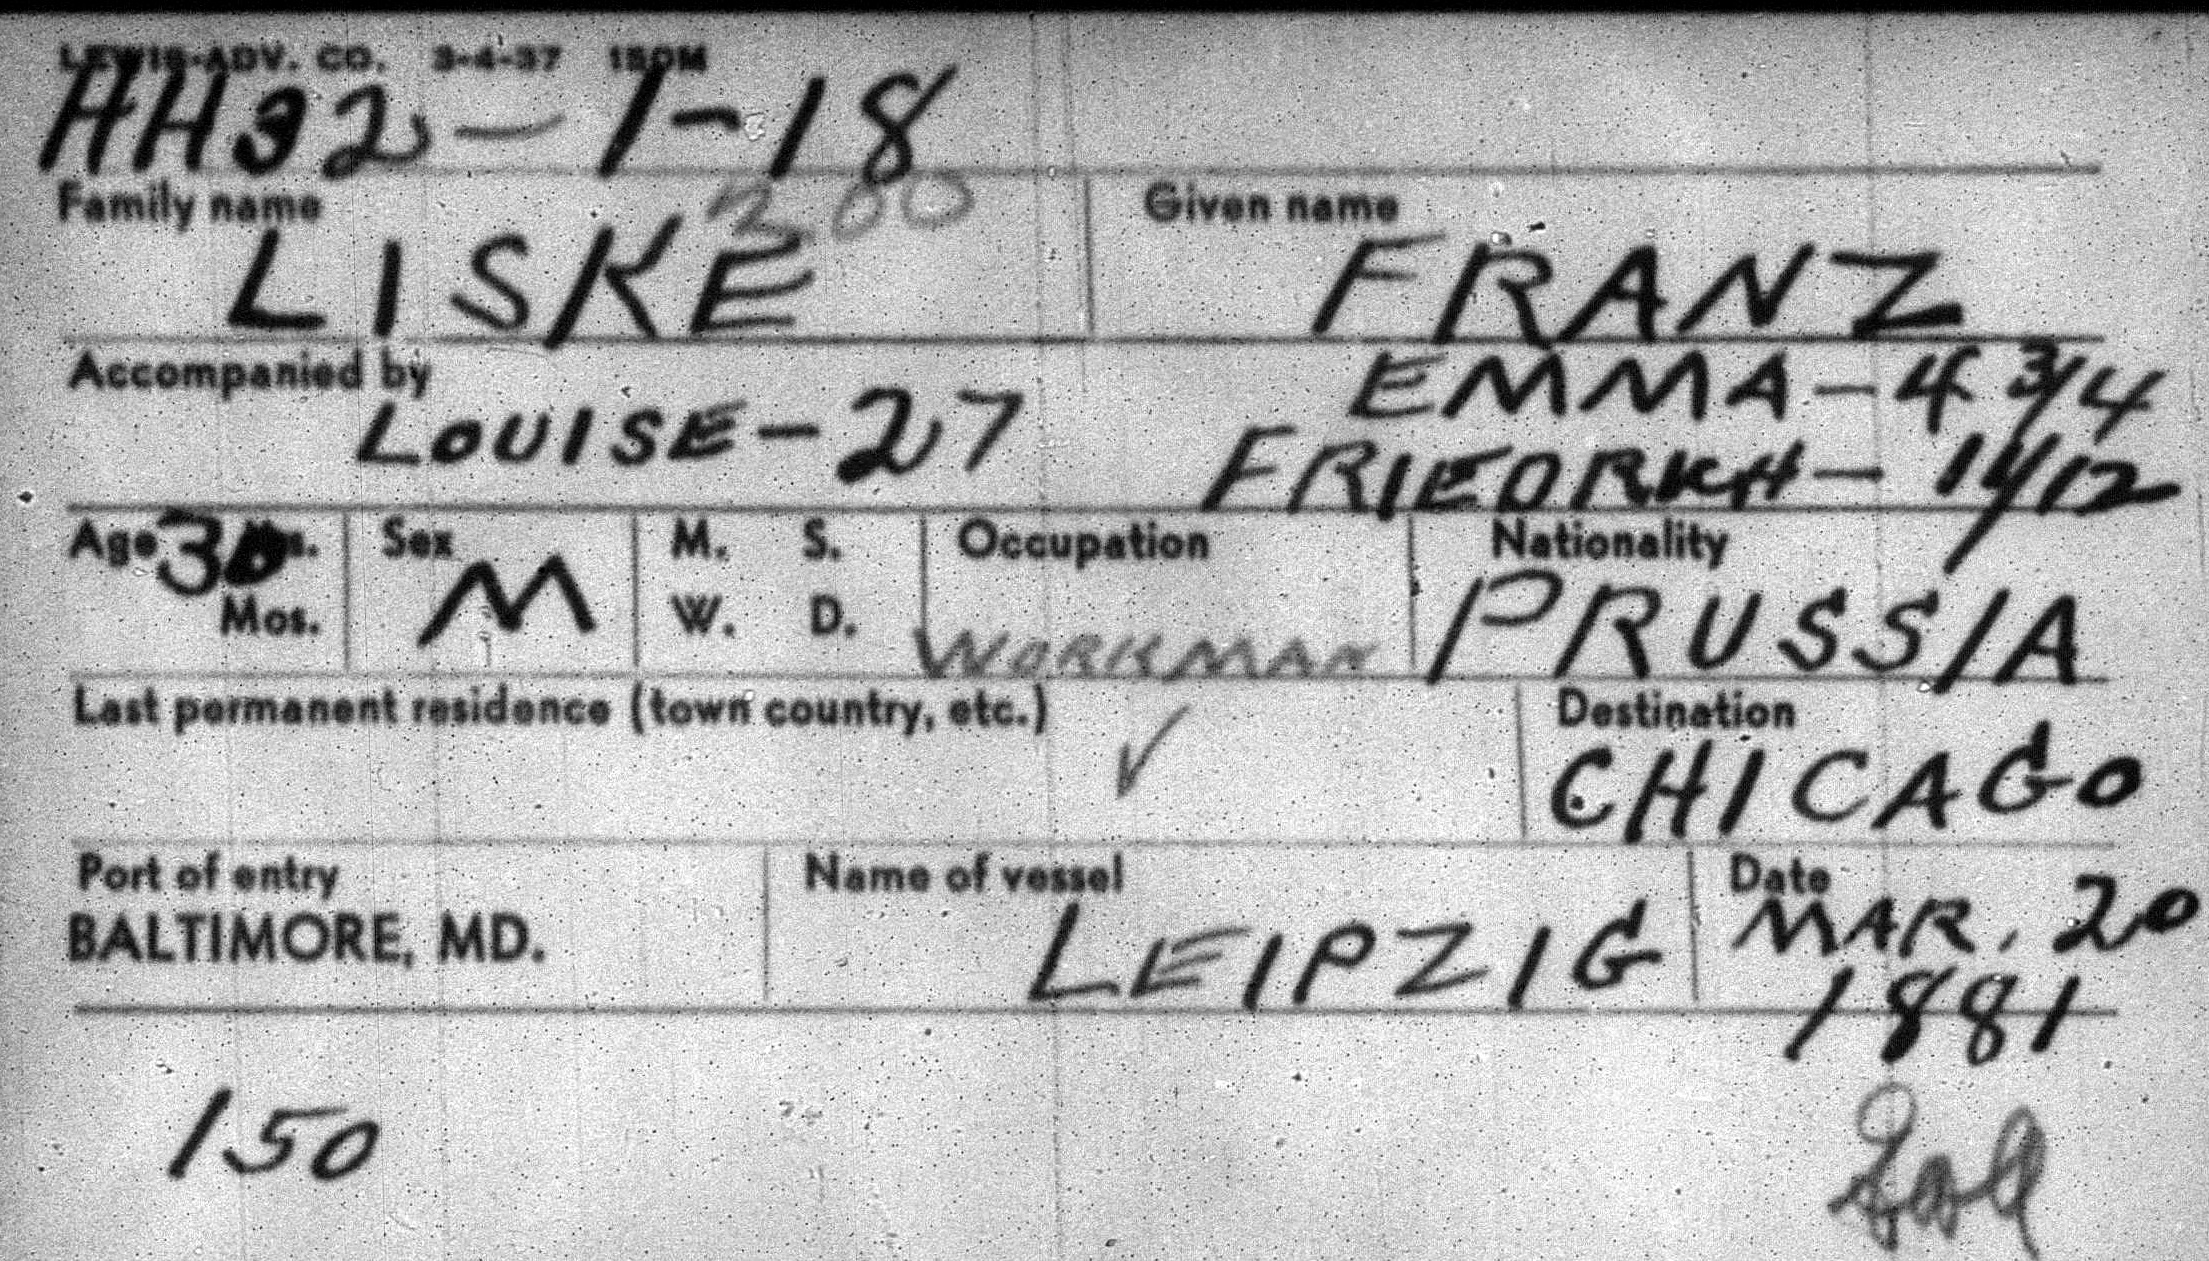 LEWIS-ADV. CO. 3-4-37 150M
HH32-1-18
200
Family name
Given name
LISKE
FRANZ
Accompanied by
LOUISE-27
EMMA-4 3/4
FRIEDRICH- 11/12
Age 30 Yrs.
Mos.
Sex
M
M. S.
W. D.
Occupation
WORKMAN
Nationality
PRUSSIA
Last permanent residence (town country, etc.)
✓
Destination
CHICAGO
Port of entry
BALTIMORE, MD.
Name of vessel
LEIPZIG
Date
MAR. 20
1881
150